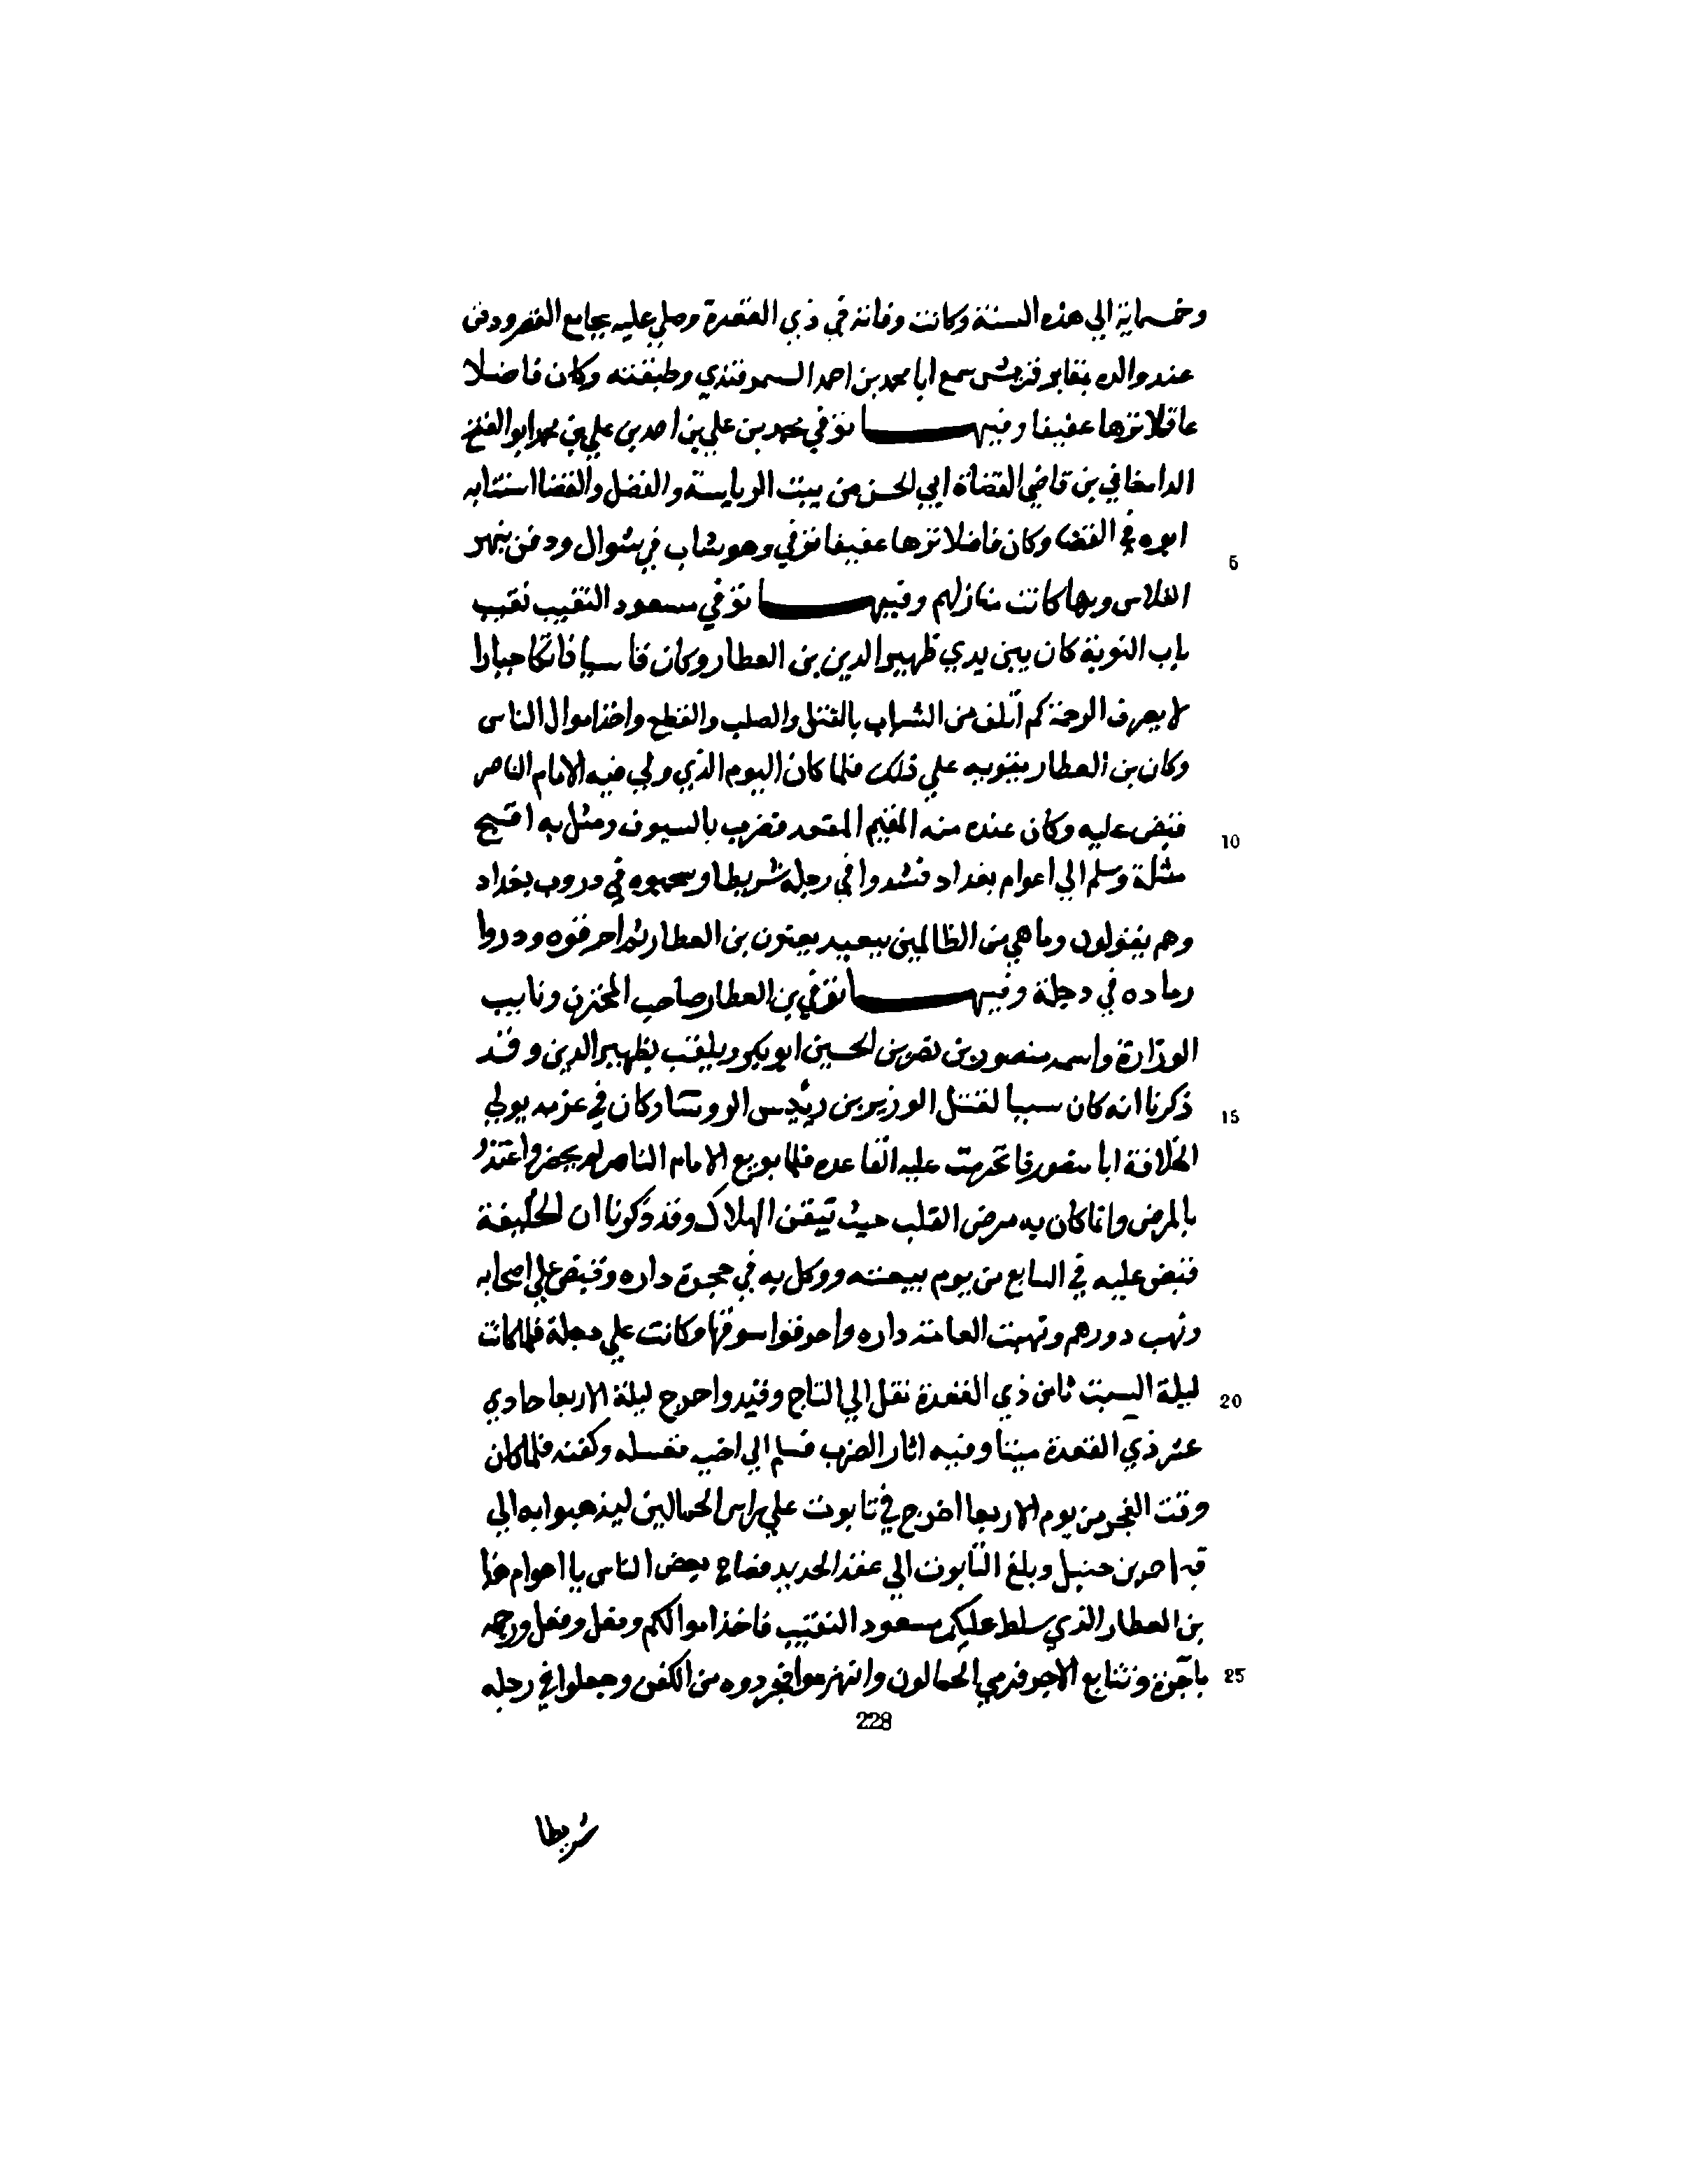 وخمسماية الي هذه السنة وكانت وفاته في ذي القعدة وصلي عليه بجامع القصر ودفن
عند والده بمقابر قريش سمع ابا محمد بن احمد السمرقندي وطبقته وكان فاضلا
عاقلا نزها عفيفا وفيها توفي محمد بن علي بن احمد بن علي بن محمد ابو الفتح
الدامغاني بن قاضي القضاة ابي الحسن من بيت الرياسة والفضل والقضا استنابه
ابوه في القضا وكان فاضلا نزها عفيفا توفي وهو شاب في شوال ودفن بنهر
5
القلاس وبها كانت منازلهم وفيها توفي مسعود النقيب نقيب
باب النوبة كان بين يدي ظهير الدين بن العطار وكان قاسيا فاتكا جبارا
لا يعرف الرحمة كم اتلف من الشباب بالقتل والصلب والقطع واخذ اموال الناس
وكان بن العطار ينوبه علي ذلك فلما كان اليوم الذي ولي فيه الامام الناصر
قبض عليه وكان عنده منه المقيم المقعد فضرب بالسيوف ومثل به اقبح
10
مثلة وسلم الي اعوام بغداد فشدوا في رجله شريطا وسحبوه في دروب بغداد
وهم يقولون وما هي من الظالمين ببعيد يعنون بن العطار ثم احرقوه وذروا
رماده في دجلة وفيها توفي بن العطار صاحب المخزن ونايب
الوزارة واسمه منصور بن نصر بن الحسين ابو بكر ويلقب بظهير الدين وقد
ذكرنا انه كان سببا لقتل الوزير بن رييس الروسا وكان في عزمه يولي
15
الخلافة ابا منصور فانخرمت عليه القاعدة فلما بويع الامام الناصر لم يحضر واعتذر
بالمرض وانما كان به مرض القلب حيث تيقن الهلاك وقد ذكرنا ان الخليفة
قبض عليه في السابع من يوم بيعته ووكل به في حجرة داره وقبض علي اصحابه
ونهب دورهم ونهبت العامة داره واحرقوا سوقها وكانت علي دجلة فلما كانت
ليلة السبت ثامن ذي القعدة نقل الي التاج وقيد واخرج ليلة الاربعا حادي
20
عشر ذي القعدة ميتا وفيه اثار الضرب فسلم الي اخيه فغسله وكفنه فلما كان
وقت الفجر من يوم الاربعا اخرج في تابوت علي راس الحمالين ليذهبوا به الي
قبر احمد بن حنبل وبلغ التابوت الي عقد الحديد فصاح بعض الناس يا اعوام هذا
بن العطار الذي سلط عليكم مسعود النقيب فاخذ اموالكم وفعل وفعل ورجمه
باجرة وتتابع الاجر فرمي الحمالون وانهزموا فجردوه من الكفن وجعلوا في رجله
25
228
شريطا